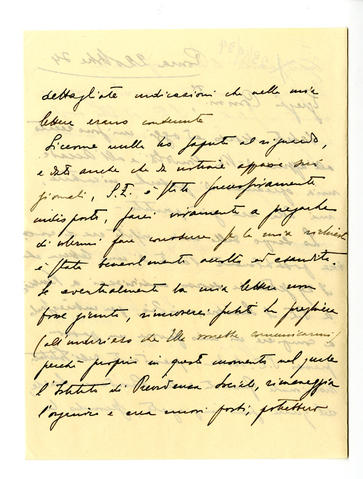 dettagliate indicazioni che nella mia
lettera erano contenute
Siccome nulla ho saputo al riguardo,
e dato anche che da notizie apparse sui
giornali, S.E. è stata
indisposto, farei vivamente a pregarla
di volermi fare conoscere se la mia richiesta
è stata benevolmente accolta ed esaudita.
Se eventualmente la mia lettera non
fosse giunta, rinnoverei la preghiera
(all'indirizzo che Ella vorrebbe comunicarmi)
perché proprio in questo momento nel quale
l'Istituto di Previdenza Sociale, rimaneggia
l'organico e crea nuovi posti, potrebbero